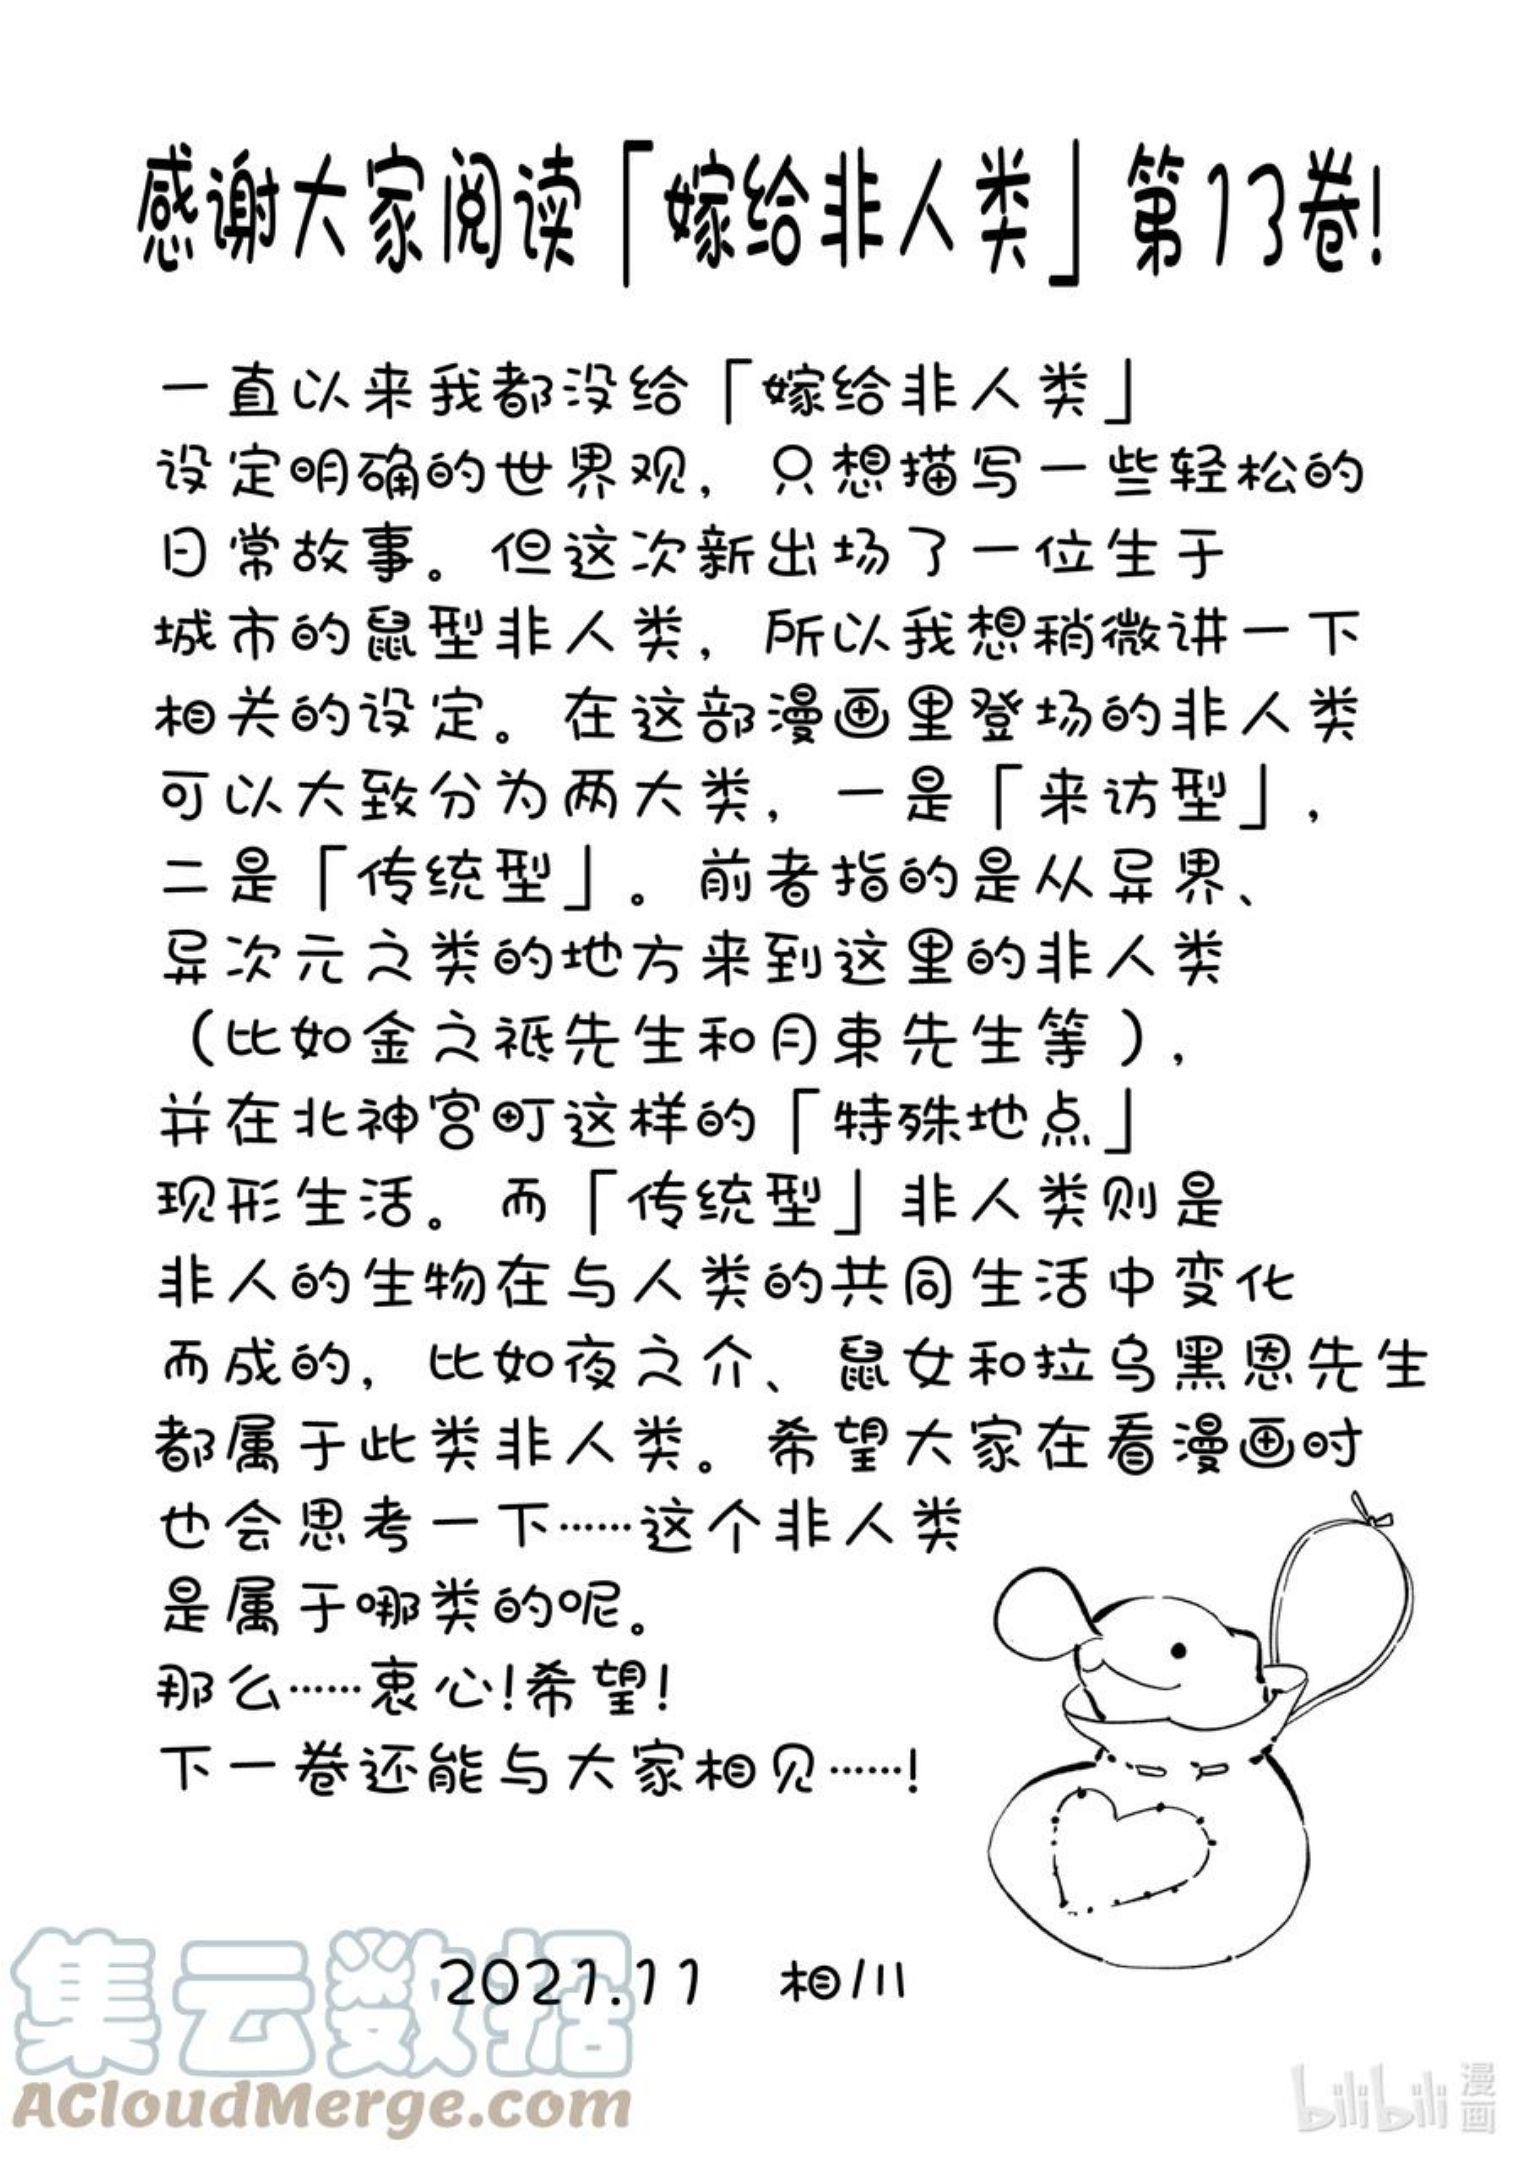 感谢大家阅读「嫁给非人类」第13卷!
一直以来我都没给「嫁给非人类」
设定明确的世界观，只想描写一些轻松的
日常故事。但这次新出场了一位生于
城市的鼠型非人类，所以我想稍微讲一下
相关的设定。在这部漫画里登场的非人类
可以大致分为两大类，一是「来访型」，
二是「传统型」。前者指的是从异界、
异次元之类的地方来到这里的非人类
（比如金之祗先生和月束先生等），
并在北神宫町这样的「特殊地点」
现形生活。而「传统型」非人类则是
非人的生物在与人类的共同生活中变化
而成的，比如夜之介、鼠女和拉乌黑恩先生
都属于此类非人类。希望大家在看漫画时
也会思考一下……这个非人类
是属于哪类的呢。
那么……衷心!希望!
下一卷还能与大家相见……!
2021.11 相川
集云数据
ACloudMerge.com
bilibili 漫画